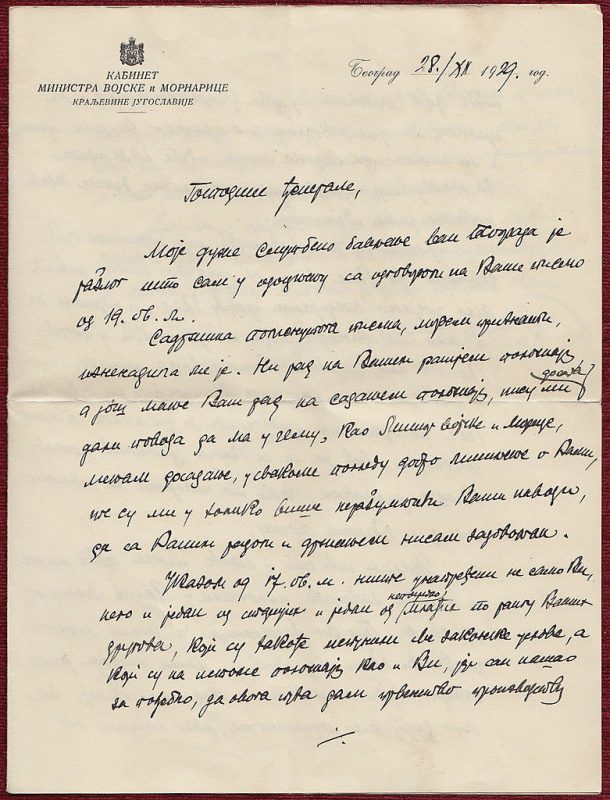 КАБИНЕТ
МИНИСТРА ВОЈСКЕ и МОРНАРИЦЕ
КРАЉЕВИНЕ ЈУГОСЛАВИЈЕ
Београд 28./XII 1929. год.
Господине Ђенерале,
Моје дуже службено бављење ван Београда је
разлог што сам у одоцњењу са одговором на Ваше писмо
од 19. ов. м.
Садржина поменутога писма, морам признати,
изненадила ме је. Ни рад на Вашем ранијем положају,
а још мање Ваш рад на садашњем положају, нису ми досада
дали повода да ма у чему, као Министар војске и морнарице,
мењам досадање, у сваком погледу добро мишљење о Вама,
те су ми у толико више неразумљиви Ваши наводи,
да са Вашим радом и држањем нисам задовољан.
Указом од 17. ов. м. нису унапређени не само Ви,
него и један од старијих и један од непосредно млађих по рангу Ваших
другова, који су такође испунили све законске услове, а
који су на истоме положају као и Ви, јер сам нашао
за потребно, да овога пута дам првенство произвођству